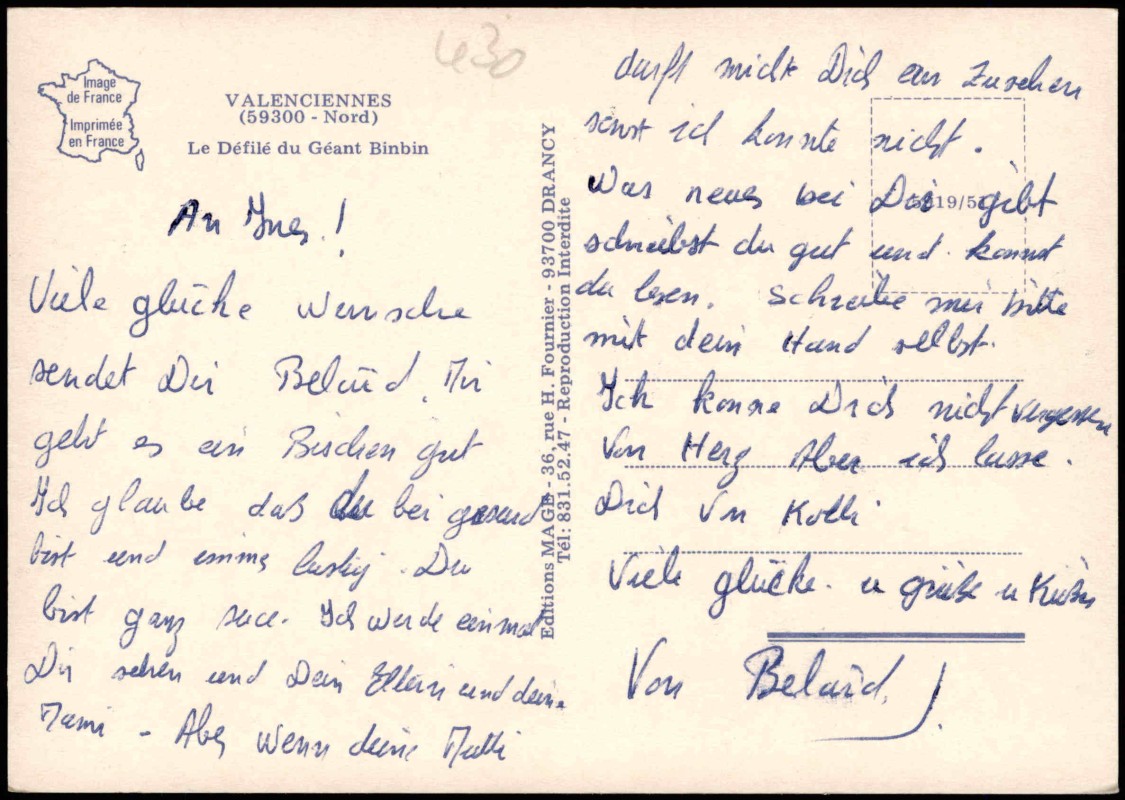 430
Image
de France
Imprimée
en France
VALENCIENNES
(59300 - Nord)
Le Défilé du Géant Binbin
An Ines!
Viele glücke wunsche
sendet Dir Belaïd. Mir
geht es ein Bischen gut
Ich glaube daß du bei gesund
bist und immer lustig. Du
bist ganz Ich werde einmal
Dir sehen und Dein Eltern und deine
Mami - Aber wenn deine Mutti
Editions MAGE - 36, rue H. Fournier - 93700 DRANCY
Tél: 831.52.47 - Reproduction Interdite
darft micht Dich an zusehen
sonst ich konnte nicht.
Was neues bei Dir gibt
schreibst du gut und konnst
du lesen. Schreibe mir bitte
mit dein Hand selbst.
Ich konne Dich nicht vergessen
Von Herz Aber ich lasse.
Dich Von
Viele glücke. u grüße u
Von Belaïd.